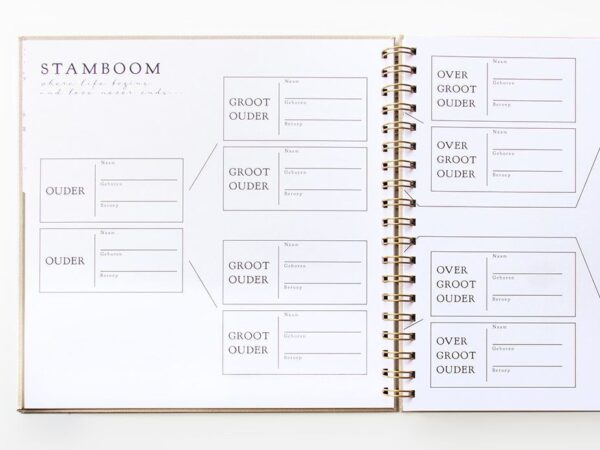 STAMBOOM
where life begins
and love never ends...
OUDER
Naam
Geboren
Beroep
OUDER
Naam
Geboren
Beroep
GROOT
OUDER
Naam
Geboren
Beroep
GROOT
OUDER
Naam
Geboren
Beroep
GROOT
OUDER
Naam
Geboren
Beroep
GROOT
OUDER
Naam
Geboren
Beroep
OVER
GROOT
OUDER
Naam
Geboren
Beroep
OVER
GROOT
OUDER
Naam
Geboren
Beroep
OVER
GROOT
OUDER
Naam
Geboren
Beroep
OVER
GROOT
OUDER
Naam
Geboren
Beroep